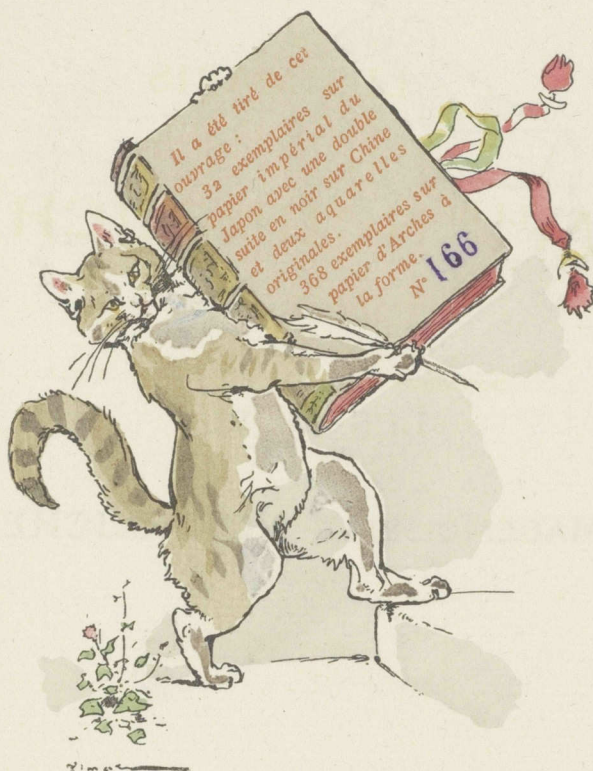 Il a été tiré de cet
ouvrage :
32 exemplaires sur
papier impérial du
Japon avec une double
suite en noir sur Chine
et deux aquarelles
originales.
368 exemplaires sur
papier d'Arches à
la forme.
Nº 166